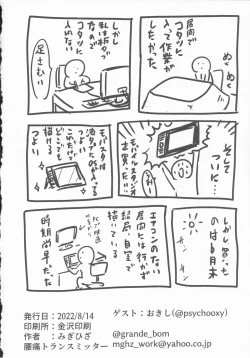 居間で
コタツに
入って作業が
したかった。
ぬく
ぬく
しかし
私は板タブ
なので
コタツに
入れない
足さむい
そして
ついに…
モバイルスタジオ
を買った!!
モバスタは
液タブにOSが入ってる
つよい
これだけで
どこでも
描ける
つよい
しかし買った
のは6月末
エアコンのない
居間には行かず
結局、自室で
描いている
時期尚早だった。
発行日:2022/8/14
印刷所:金沢印刷
作者 :みぎひざ
腰痛トランスミッター
ゲスト:おきし(@psychooxy)
@grande_bom
mghz_work@yahoo.co.jp